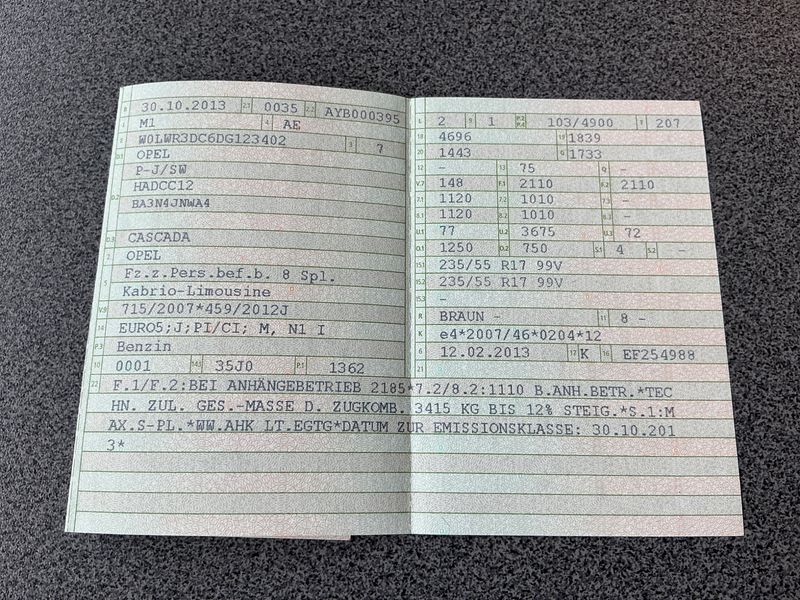 B 30.10.2013 2.1 0035 2.2 AYB000395
J M1 4 AE
E W0LWR3DC6DG123402 3 7
D.1 OPEL
P-J/SW
D.2 HADCC12
BA3N4JNWA4
D.3 CASCADA
2 OPEL
5 Fz.z.Pers.bef.b. 8 Spl.
Kabrio-Limousine
V.9 715/2007*459/2012J
14 EURO5;J;PI/CI; M, N1 I
P.3 Benzin
10 0001 14.1 35J0 P.1 1362
L 2 9 1 P.2 P.4 103/4900 T 207
18 4696 19 1839
20 1443 G 1733
12 - 13 75 Q -
V.7 148 F.1 2110 F.2 2110
7.1 1120 7.2 1010 7.3 -
8.1 1120 8.2 1010 8.3 -
U.1 77 U.2 3675 U.3 72
O.1 1250 O.2 750 S.1 4 S.2 -
15.1 235/55 R17 99V
15.2 235/55 R17 99V
15.3 -
R BRAUN - 11 8 -
K e4*2007/46*0204*12
6 12.02.2013 17 K 16 EF254988
21
22 F.1/F.2:BEI ANHÄNGEBETRIEB 2185*7.2/8.2:1110 B.ANH.BETR.*TEC
HN. ZUL. GES.-MASSE D. ZUGKOMB. 3415 KG BIS 12% STEIG.*S.1:M
AX.S-PL.*WW.AHK LT.EGTG*DATUM ZUR EMISSIONSKLASSE: 30.10.201
3*